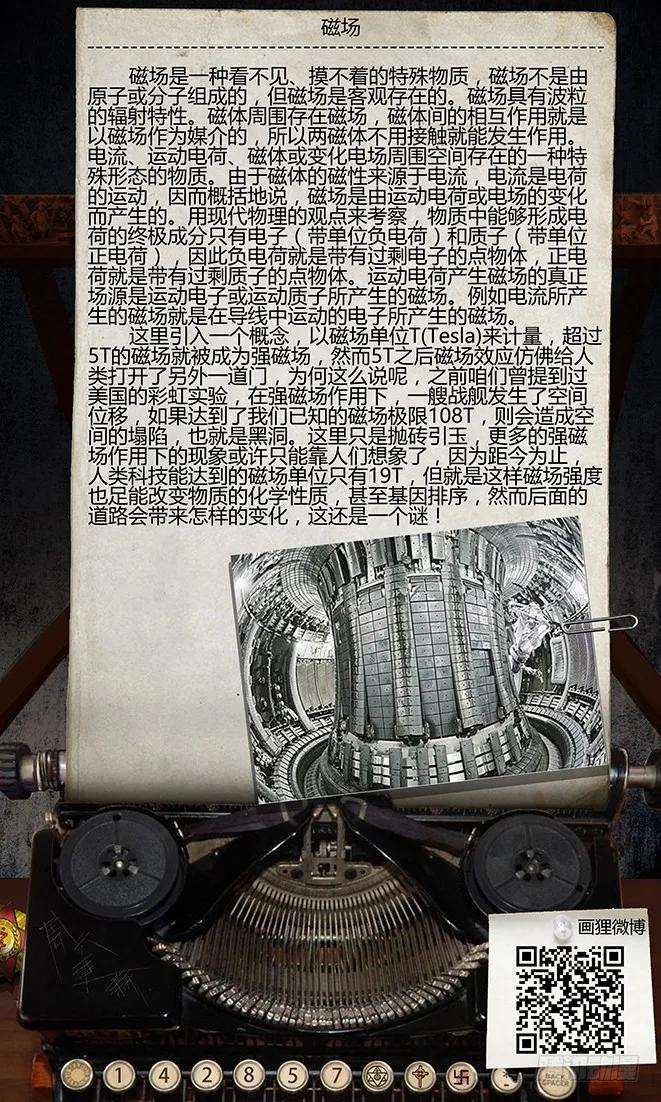 磁场
磁场是一种看不见、摸不着的特殊物质，磁场不是由
原子或分子组成的，但磁场是客观存在的。磁场具有波粒
的辐射特性。磁体周围存在磁场，磁体间的相互作用就是
以磁场作为媒介的，所以两磁体不用接触就能发生作用。
电流、运动电荷、磁体或变化电场周围空间存在的一种特
殊形态的物质。由于磁体的磁性来源于电流，电流是电荷
的运动，因而概括地说，磁场是由运动电荷或电场的变化
而产生的。用现代物理的观点来考察，物质中能够形成电
荷的终极成分只有电子（带单位负电荷）和质子（带单位
正电荷），因此负电荷就是带有过剩电子的点物体，正电
荷就是带有过剩质子的点物体。运动电荷产生磁场的真正
场源是运动电子或运动质子所产生的磁场。例如电流所产
生的磁场就是在导线中运动的电子所产生的磁场。
这里引入一个概念，以磁场单位T(Tesla)来计量，超过
5T的磁场就被成为强磁场，然而5T之后磁场效应仿佛给人
类打开了另外一道门，为何这么说呢，之前咱们曾提到过
美国的彩虹实验，在强磁场作用下，一艘战舰发生了空间
位移，如果达到了我们已知的磁场极限108T，则会造成空
间的塌陷，也就是黑洞。这里只是抛砖引玉，更多的强磁
场作用下的现象或许只能靠人们想象了，因为距今为止，
人类科技能达到的磁场单位只有19T，但就是这样磁场强度
也足能改变物质的化学性质，甚至基因排序，然而后面的
道路会带来怎样的变化，这还是一个谜！
画狸微博
1 4 2 8 5 7
BACK SPACER